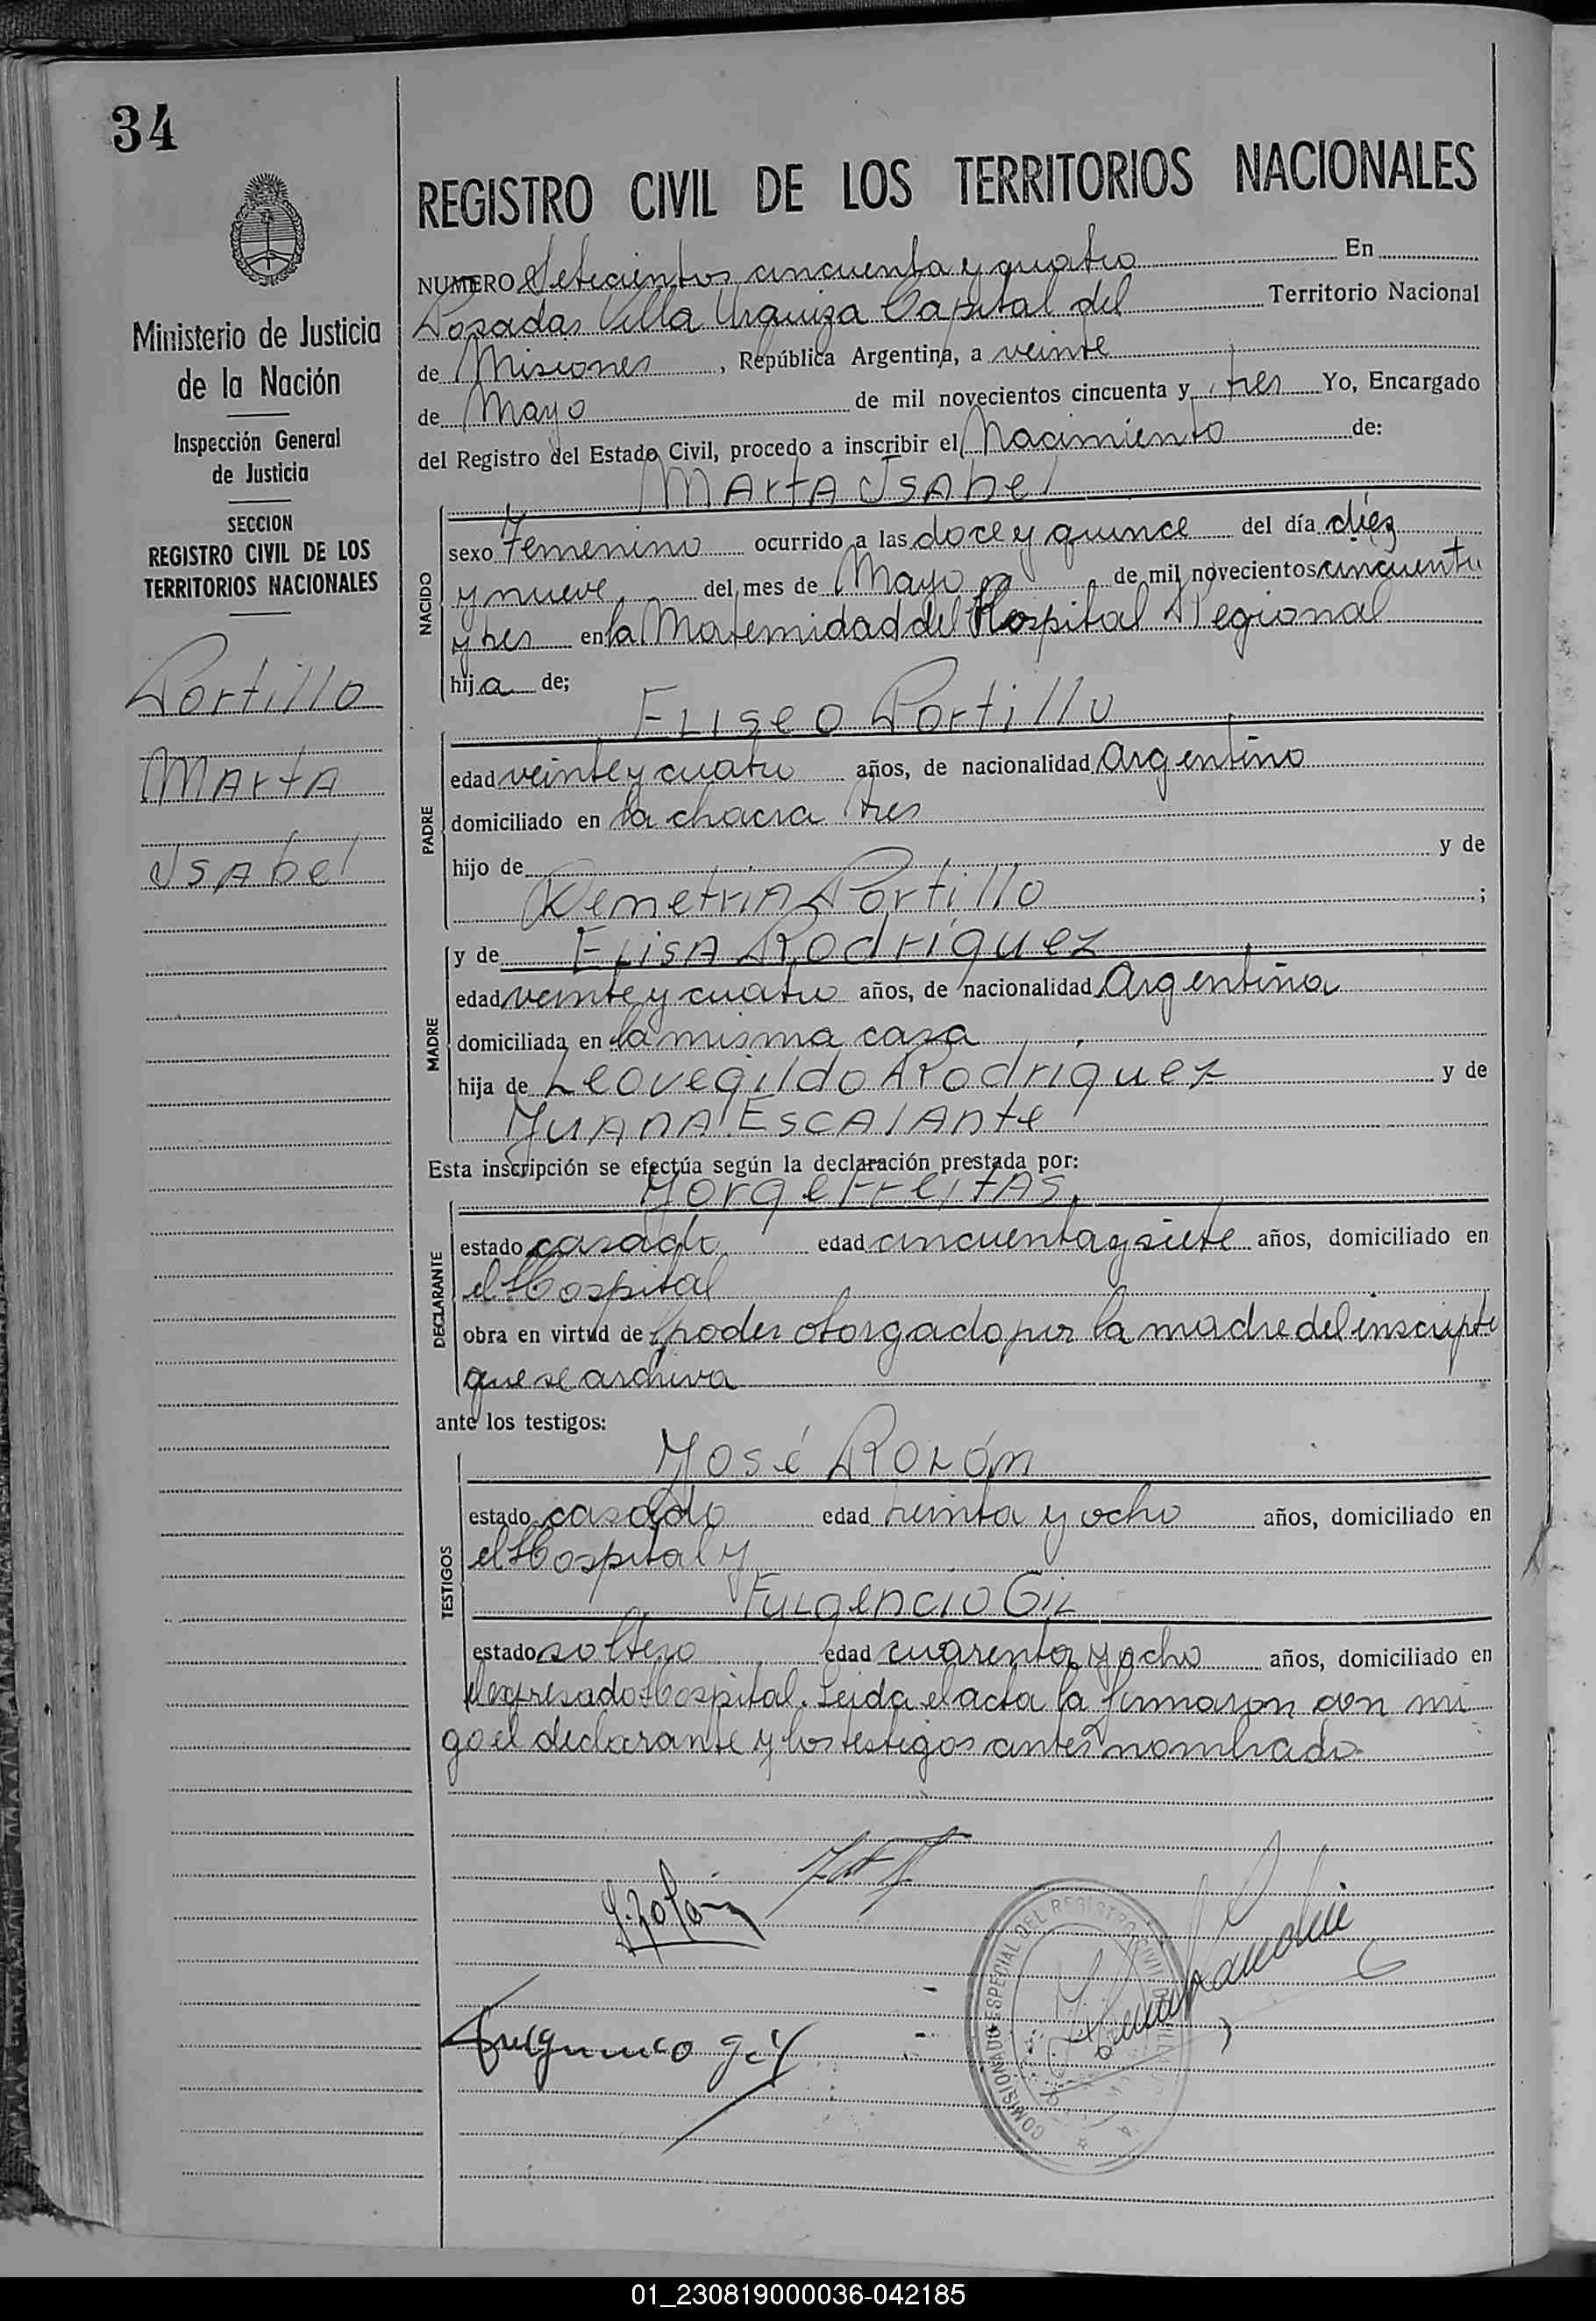 34
Ministerio de Justicia
de la Nación
Inspección General
de Justicia
SECCION
REGISTRO CIVIL DE LOS
TERRITORIOS NACIONALES
Portillo
Marta
Isabel
REGISTRO CIVIL DE LOS TERRITORIOS NACIONALES
NUMERO Setecientos cincuenta y cuatro En
Posadas Villa Urquiza Capital del Territorio Nacional
de Misiones, República Argentina, a veinte
de Mayo de mil novecientos cincuenta y tres Yo, Encargado
del Registro del Estado Civil, procedo a inscribir el Nacimiento de:
Marta Isabel
NACIDO
sexo Femenino ocurrido a las doce y quince del día diez
y nueve del mes de Mayo de mil novecientos cincuenta
y tres en la Maternidad del Hospital Regional
hija de;
Eliseo Portillo
PADRE
edad veinte y cuatro años, de nacionalidad Argentino
domiciliado en la chacra tres
hijo de y de
Demetria Portillo ;
MADRE
y de Elisa Rodríguez
edad veinte y cuatro años, de nacionalidad Argentina
domiciliada en la misma casa
hija de Leovegildo Rodríguez y de
Juana Escalante
Esta inscripción se efectúa según la declaración prestada por:
Jorge Freitas
DECLARANTE
estado casado edad cincuenta y siete años, domiciliado en
el Hospital
obra en virtud de poder otorgado por la madre del inscripto
que se archiva
ante los testigos:
José Rolón
TESTIGOS
estado casado edad treinta y ocho años, domiciliado en
el Hospital y
Fulgencio Gil
estado soltero edad cuarenta y ocho años, domiciliado en
el expresado Hospital. Leida el acta la firmaron con mi
go el declarante y los testigos antes nombrado
J. Rolón
Fulgencio Gil
COMISIONADO ESPECIAL DEL REGISTRO CIVIL
01_230819000036-042185